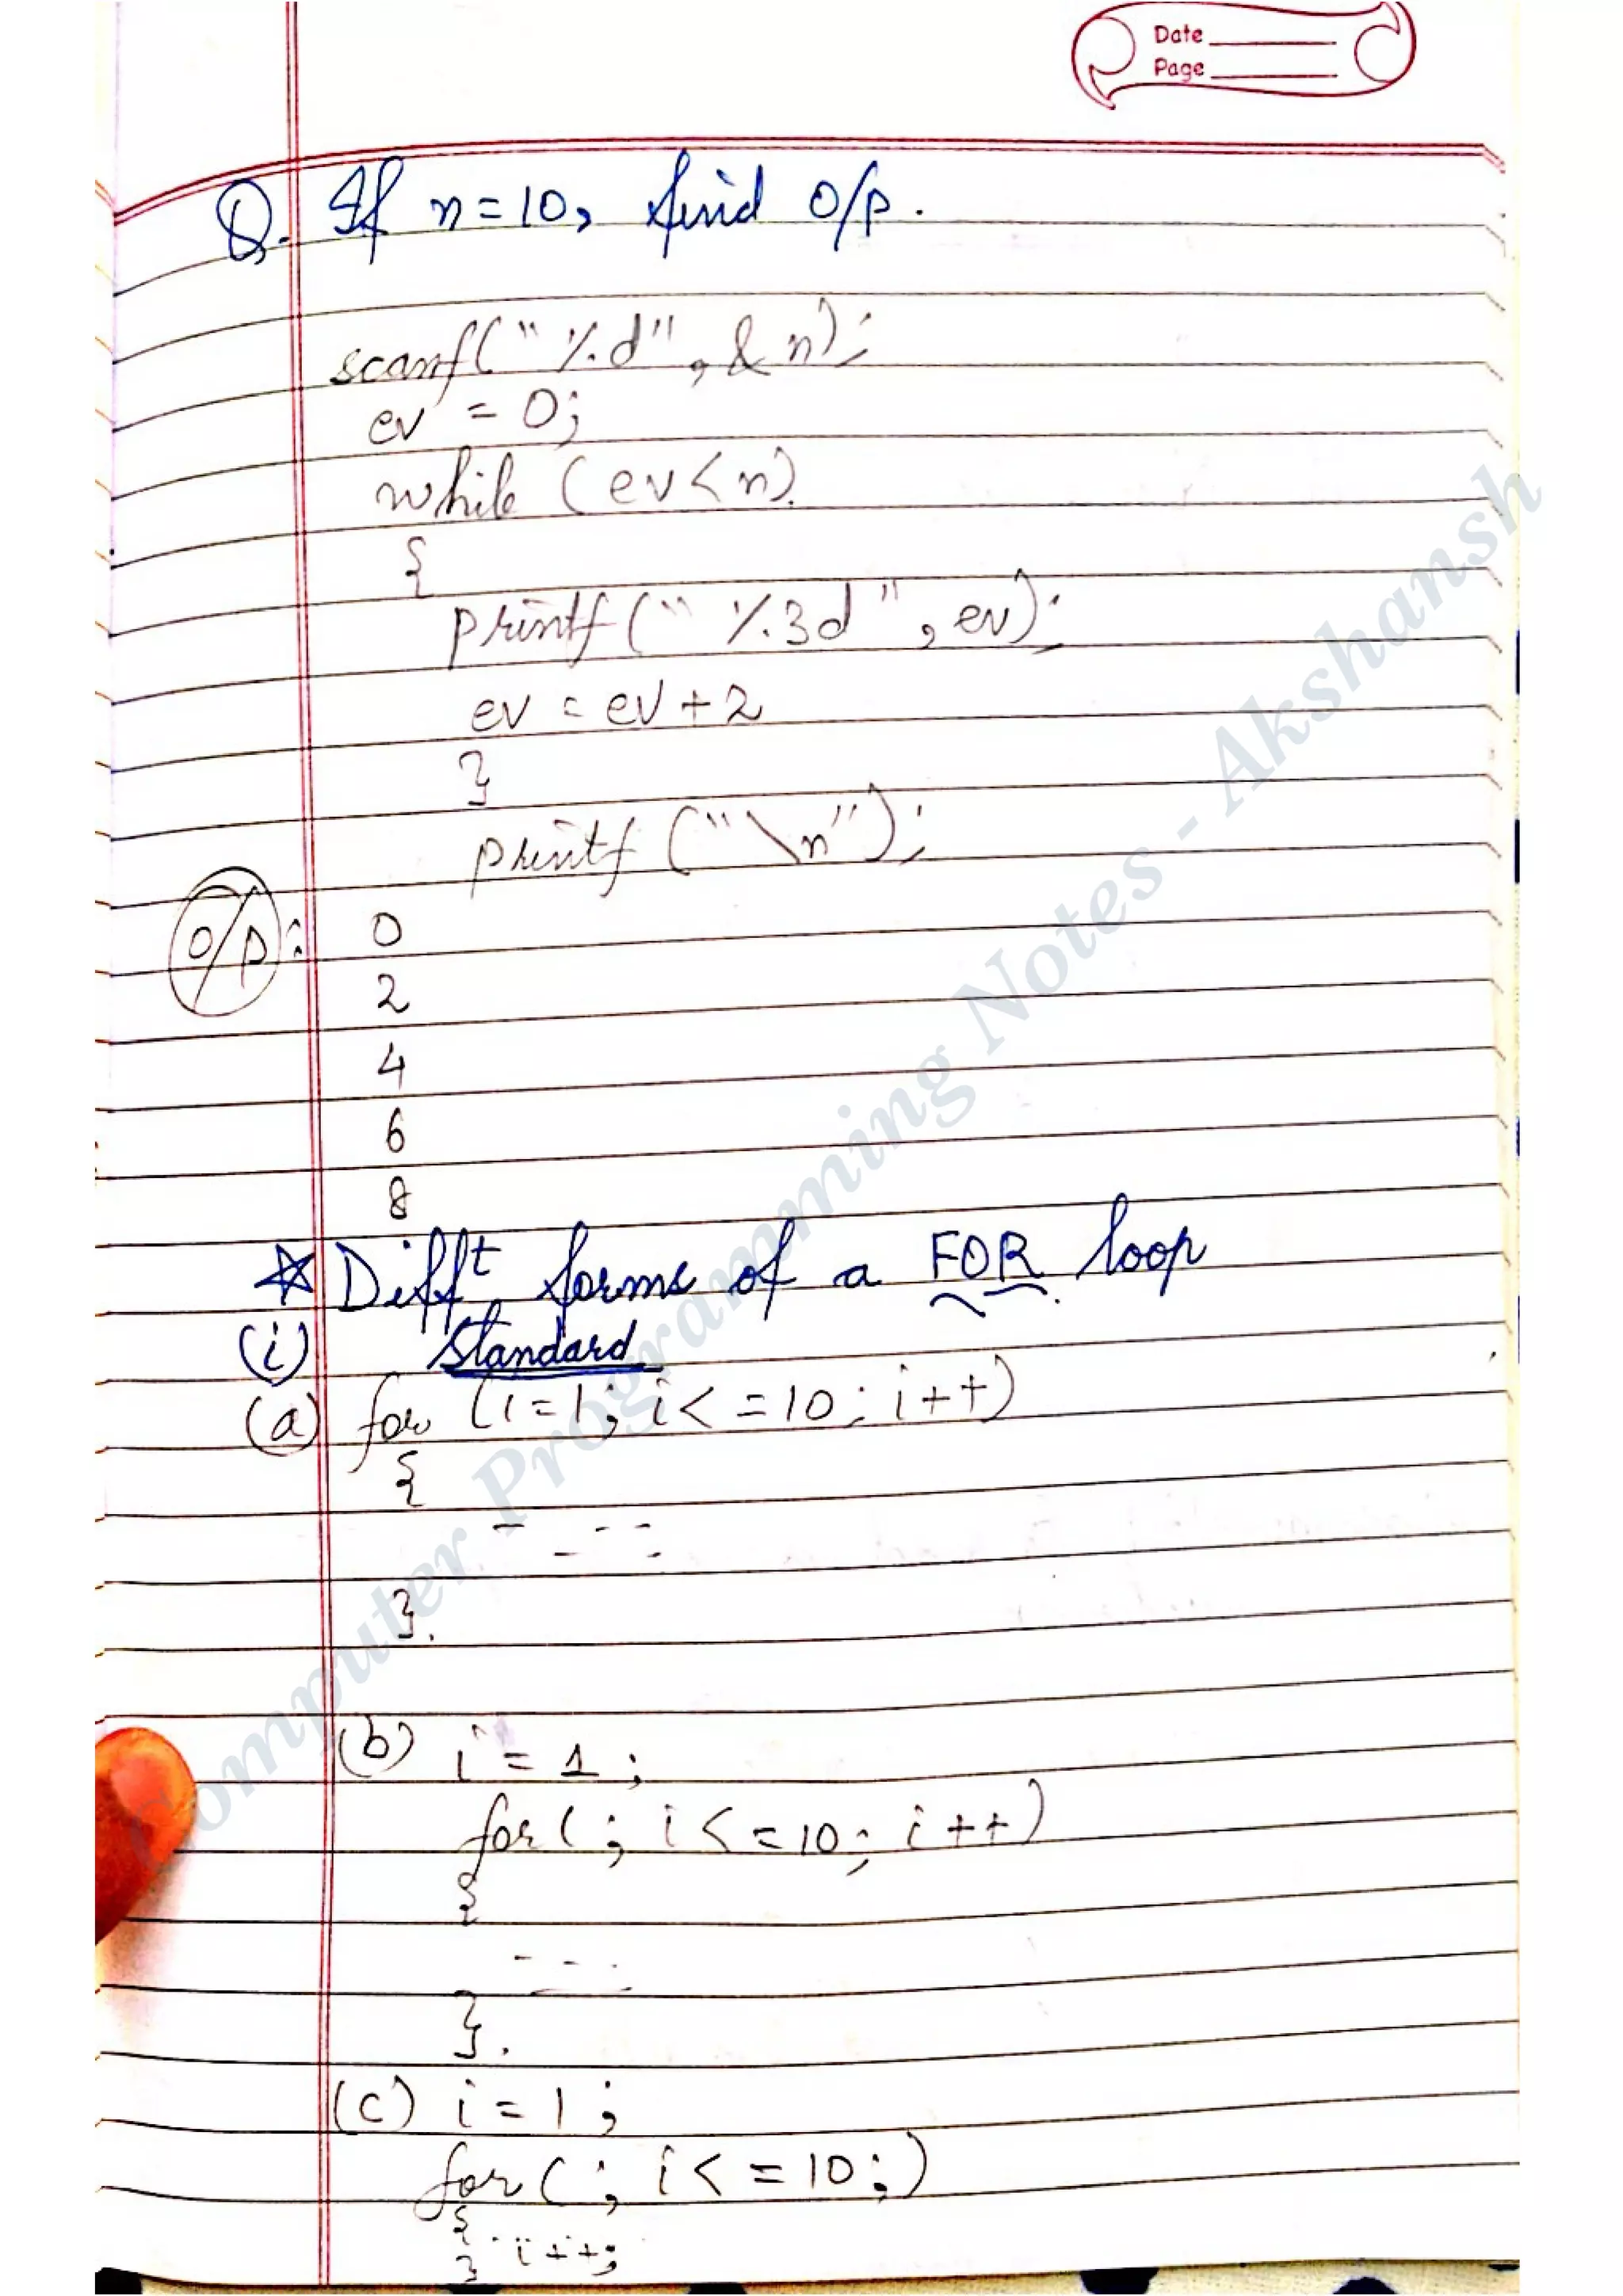 Date
Page
Q. If n=10, find O/P.
scanf("%d", &n);
ev = 0;
while (ev<n)
{
printf("%3d", ev);
ev = ev+2
}
printf("\n");
O/P: 0
2
4
6
8
☆ Difft forms of a FOR loop
(i) Standard
(a) for (i=1; i<=10; i++)
{
}.
(b) i = 1;
for(; i<=10; i++)
{
}.
(c) i = 1;
for(; i<=10;)
{
} i++;
Computer Programming Notes - Akshansh